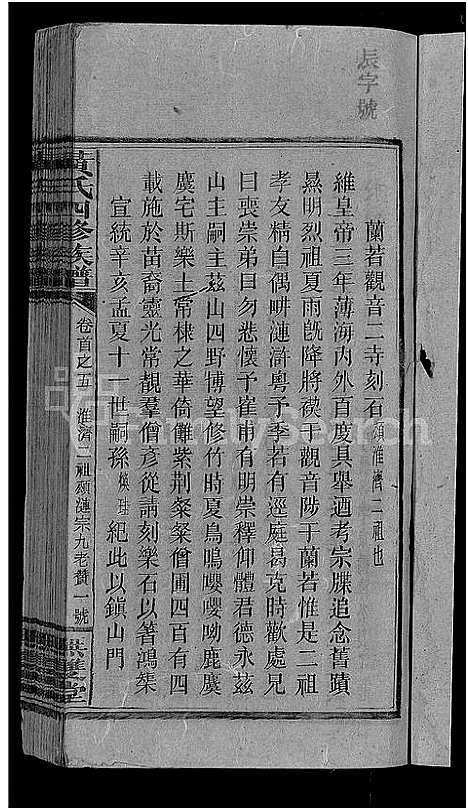 辰字號
蘭若觀音二寺刻石頌淮濟二祖也
維皇帝三年薄海內外百度具舉迺考宗牒追念舊蹟
㬎明烈祖夏雨旣降將禊于觀音陟于蘭若惟是二祖
孝友精自偶畊漣滸粵予季若有逕庭曷克時歡處兄
曰喪祟弟曰勿恝懷予寉甫有明崇釋仰體君德永茲
山主嗣主茲山四野博望修竹時夏鳥鳴嚶嚶呦鹿麌
麌宅斯樂土常棣之華倚儺紫荆粲粲僧圃四百有四
載施於苗裔靈光常覩羣僧彥從請刻樂石以箸鴻榘
宣統辛亥孟夏十一世嗣孫 紀此以鎮山門
黃氏四修族譜
卷首之五 淮濟二祖頌漣宗九老贊一號
無雙堂
FamilySearch